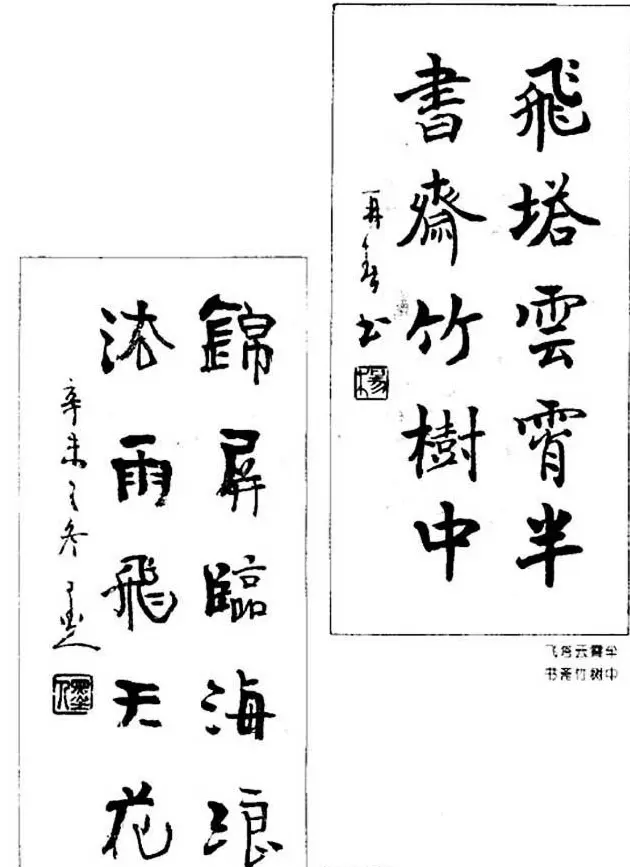 飛塔雲霄半
書齋竹樹中
再春书
飞塔云霄半
书斋竹树中
錦屏臨海浪
法雨飛天花
辛未之冬